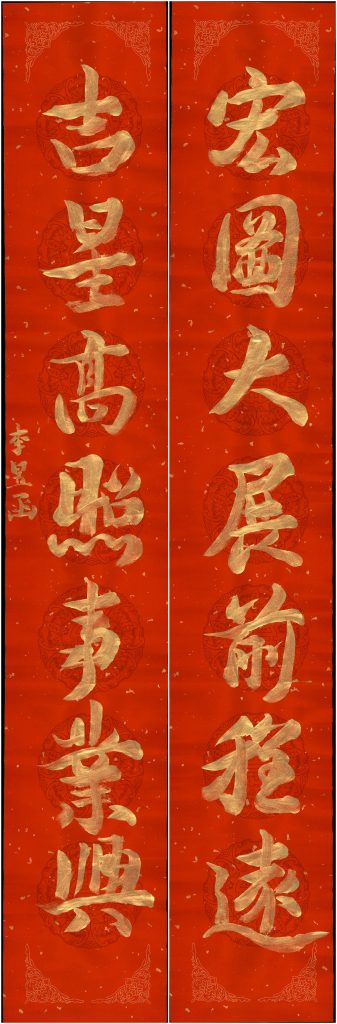 宏圖大展前程遠
吉星高照事業興
李昱函